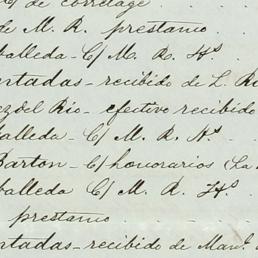 C/ de corretage
de M. R. prestamo
balleda - C/ M. R. Hs
ntadas - recibido de L. R
ez del Rio - efectivo recibido
alleda - C/ M. R. Ns
Barton - C/ honorarios (La
balleda C/ M. R. Hs
prestamo
ntadas - recibido de Manl.